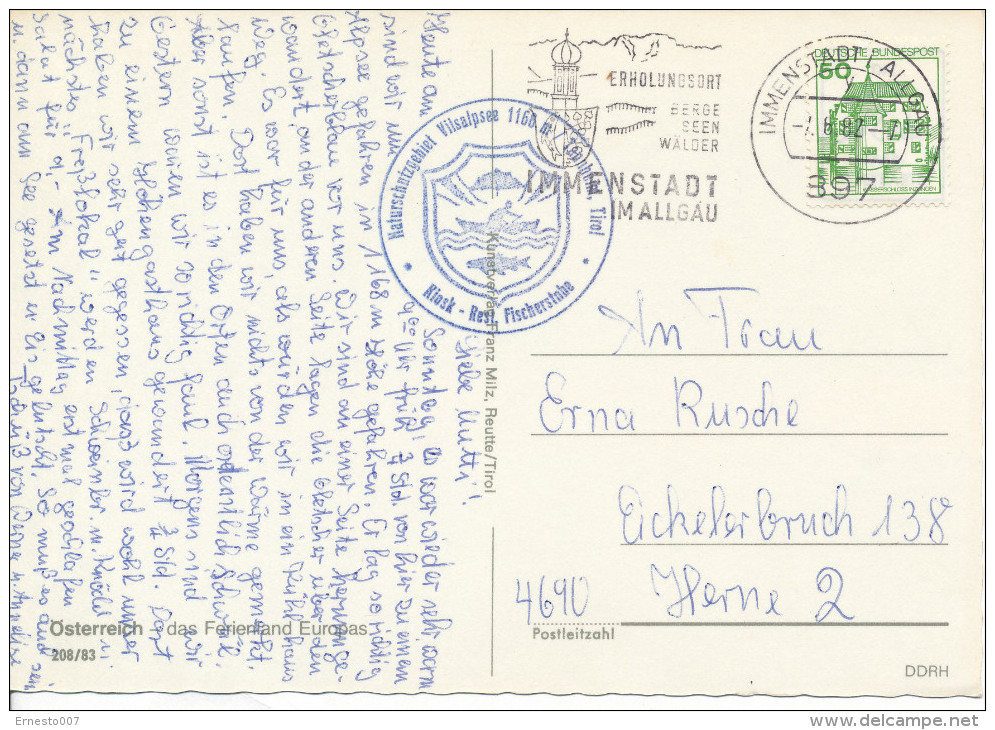 Sonntag,
Liebe Mutti!
Heute am Sonntag, es war wieder sehr warm
sind wir um 9 00 Uhr früh ½ Std. von hier zu einem
Alpsee gefahren in 1168 m Höhe gefahren. Er lag so richtig
Gletscherblau vor uns. Wir sind an einer Seite herumge-
wandert, an der anderen Seite lagen die Gletscher über den
Weg. Es war für uns, als würden wir in ein Kühlhaus
laufen. Dort haben wir nichts von der Wärme gemerkt.
Aber sonst ist es in den Orten auch ordentlich schwül.
Gestern waren wir richtig faul. Morgens sind wir
zu einem Höhengasthaus gewandert ½ Std. Dort
haben wir sehr gut gegessen, das wird wohl unser
nächstes „Freßlokal" werden. Schweinebr. m. Knödel u.
Salat für 9,- Am Nachmittag erst mal geschlafen
u. dann am See gesetzt u. Eis gelutscht. So muß es auch sein
Tschüß von Werner u. Annelise
Naturschutzgebiet Vilsalpsee 1160 m
Tirol
Kiosk - Rest. Fischerstube
Kunstverlag Franz Milz, Reutte/Tirol
ERHOLUNGSORT
BERGE
SEEN
WÄLDER
IMMENSTADT
IM ALLGÄU
IMMENSTADT, ALLGÄU
897
DEUTSCHE BUNDESPOST
50
WASSERSCHLOSS INZLINGEN
An Frau
Erna Rusche
Eickelerbruch 138
4690 Herne 2
Postleitzahl
Österreich - das Ferienland Europas
208/83
DDRH
Ernesto007
www.delcampe.net